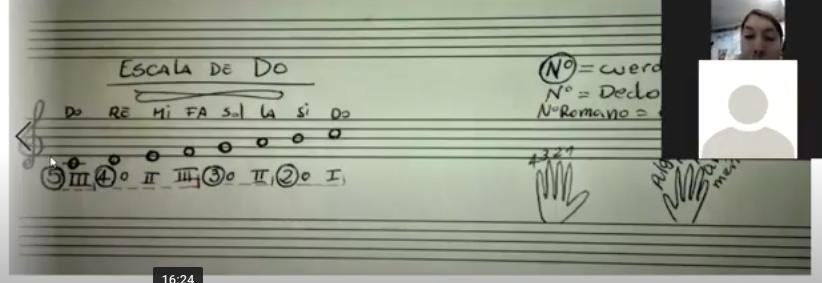 ESCALA DE DO
DO RE Mi FA Sol LA Si DO
⑤ III, ④ 0 II III, ③ 0 II, ② 0 I,
Nº = cuerd
Nº = Dedo
Nº Romano =
4 3 2 1
16:24